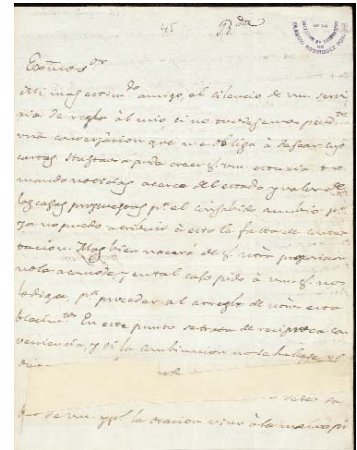 45 Rda
Exmo Sor
Mi mas estimdo amigo, el silencio de vm. servi
ria de regla al mio, si no tubiesemos pendte
una conversacion que me obliga a desear sus
cartas. Hasta aora pude creer q. vm. estaria to
mando noticias acerca del estado y valor de
las casas propuestas pa el consabido cambio, po
ya no puedo atribuir a esto la falta de contes
tacion. Mas bien nacerá de q. ntra proposicion
no le acomode, y en tal caso pido a vm. q. nos
lo diga pa proceder al arreglo de ntro esta
blecimto. En este punto se trata de reciproca con
veniencia, y si la combinacion no se hallase, el
de vm. ppl. la ocasion vivo à la